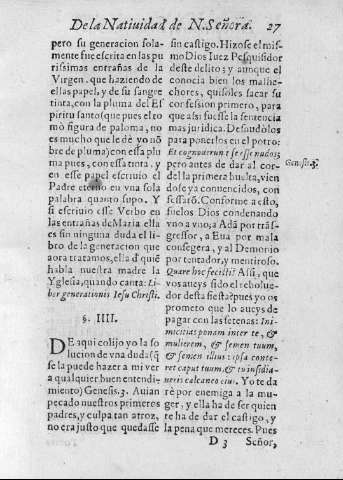 De la Natiuidad de N. Señora. 27
pero su generacion sola-
mente fue escrita en las pu
rissimas entrañas de la
Virgen. que haziendo de
ellas papel, y de su sangre
tinta, con la pluma del Es
piritu santo (que pues el to
mò figura de paloma, no
es mucho que le dè yo nõ
bre de pluma) con essa plu
ma pues, con essa tinta. y
en esse papel escriuio el
Padre eterno en vna sola
palabra quanto supo. Y
si escriuio esse Verbo en
las entrañas de Maria ella
es sin ninguna duda el li-
bro de la generacion que
aora tratamos, ella d̃ quiẽ
habla nuestra madre la
Yglesia, quando canta: Li-
ber generationis Iesu Christi.
§. IIII.
DE aqui colijo yo la so
lucion de vna duda (q̃
se la puede hazer a mi ver
a qualquier buen entendi-
miento) Genesis. 3. Auian
pecado nuestros primeros
padres, y culpa tan atroz,
no era justo que quedasse
sin castigo. Hizose el mis-
mo Dios Iuez Pesquisidor
deste delito; y aunque el
conocia bien los malhe-
chores, quisoles sacar su
confession primero, para
que assi fuesse la sentencia
mas juridica. Desnudòlos
para ponerlos en el potro:
Et cognouerunt se esse nudos;
Genes. 3.
pero antes de dar al cor-
del la primera buelta, vien
dose ya conuencidos, con
fessarõ. Conforme a esto,
fuelos Dios condenando
vno a vno; a Adã por trás-
gressor, a Eua por mala
consegera, y al Demonio
por tentador, y mentiroso.
Quare hoc fecisti? Assi, que
vos aueys sido el rebolue-
dor desta fiesta? pues yo os
prometo que lo aueys de
pagar con las setenas: Ini-
micitias ponam inter te, &
mulierem, & semen tuum,
& semen illius: ipsa conte-
ret caput tuum, & tu insidia-
ueris calcaneo eius. Yo te da
rè por enemiga a la mu-
ger, y ella ha de ser quien
te ha de dar el castigo, y
la pena que mereces. Pues
D 3 Señor,